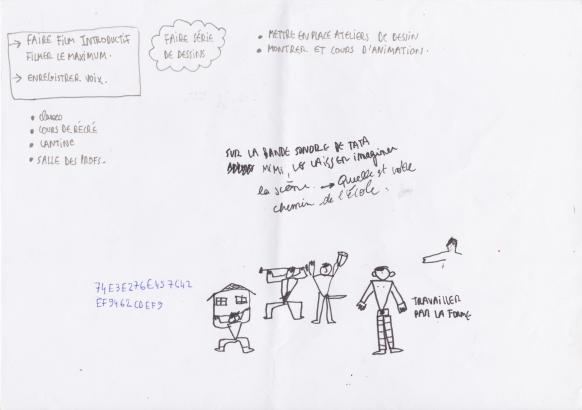 → FAIRE FILM INTRODUCTIF
FILMER LE MAXIMUM.
→ ENREGISTRER VOIX.
FAIRE SÉRIE
DE DESSINS
• METTRE EN PLACE ATELIERS DE DESSIN
• MONTRER ET COURS D'ANIMATIONS.
• CLASSES
• COURS DE RÉCRÉ
• CANTINE
• SALLE DES PROFS.
SUR LA BANDE SONORE DE TATA
MIMI, LES LAISSER imaginer
la scène. → Quelle est votre
chemin de l'École.
74E3E276E457C42
EF9462CDEF9
TRAVAILLER
PAR LA FORME